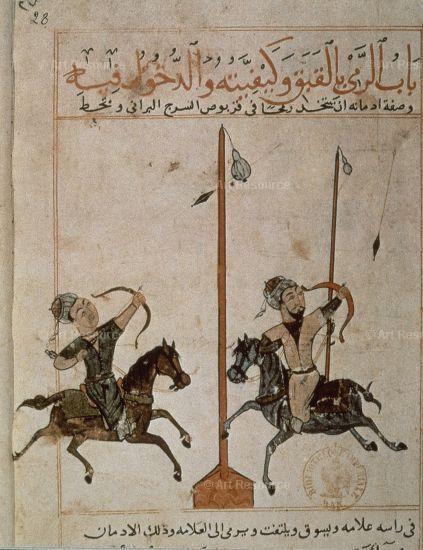 28
باب الرمي بالقبق وكيفيته والدخول فيه
وصفة ادمانه ان تتخذ رمحا في قربوص السرج البراني وتحط
© Art Resource
© Art Resource
© Art Resource
© Art Resource
في راسه علامه ويسوق ويلتفت ويرمي الى العلامه وذلك الادمان